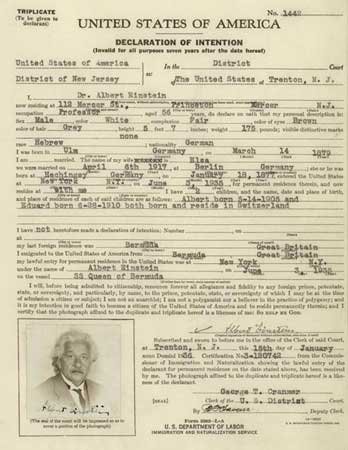 TRIPLICATE
(To be given to declarant)
No. 1442
UNITED STATES OF AMERICA
DECLARATION OF INTENTION
(Invalid for all purposes seven years after the date hereof)
United States of America
District of New Jersey
ss:
In the District Court
of The United States of Trenton, N. J.
I, Dr. Albert Einstein
now residing at 112 Mercer St., Princeton Mercer N.J.
occupation Professor, aged 56 years, do declare on oath that my personal description is:
Sex Male, color White, complexion Fair, color of eyes Brown
color of hair Grey, height 5 feet 7 inches; weight 175 pounds; visible distinctive marks
none
race Hebrew; nationality German
I was born in Ulm Germany, on March 14 1879
I am married. The name of my wife is Elsa
we were married on April 6th 1917, at Berlin Germany; she or he was
born at Hechingen Germany, on January 18, 1877, entered the United States
at New York N.Y., on June 3, 1935, for permanent residence therein, and now
resides at with me. I have 2 children, and the name, date and place of birth,
and place of residence of each of said children are as follows: Albert born 5-14-1905 and
Eduard born 6-28-1910 both born and reside in Switzerland
I have not heretofore made a declaration of intention: Number, on
at
my last foreign residence was Bermuda Great Britain
I emigrated to the United States of America from Bermuda Great Britain
my lawful entry for permanent residence in the United States was at New York N.Y.
under the name of Albert Einstein, on June 3, 1935
on the vessel SS Queen of Bermuda
I will, before being admitted to citizenship, renounce forever all allegiance and fidelity to any foreign prince, potentate,
state, or sovereignty, and particularly, by name, to the prince, potentate, state, or sovereignty of which I may be at the time of
admission a citizen or subject; I am not an anarchist; I am not a polygamist nor a believer in the practice of polygamy; and
it is my intention in good faith to become a citizen of the United States of America and to reside permanently therein; and I
certify that the photograph affixed to the duplicate and triplicate hereof is a likeness of me: So help me God.
Albert Einstein
Subscribed and sworn to before me in the office of the Clerk of said Court,
at Trenton, N. J. this 15th day of January
anno Domini 1936. Certification No. 3-120742 from the Commissioner
of Immigration and Naturalization showing the lawful entry of the
declarant for permanent residence on the date stated above, has been received
by me. The photograph affixed to the duplicate and triplicate hereof is a likeness
of the declarant.
George T. Cranmer
[SEAL] Clerk of the U. S. District Court.
By Deputy Clerk.
Albert Einstein
Form 2202-L-A
U. S. DEPARTMENT OF LABOR
IMMIGRATION AND NATURALIZATION SERVICE